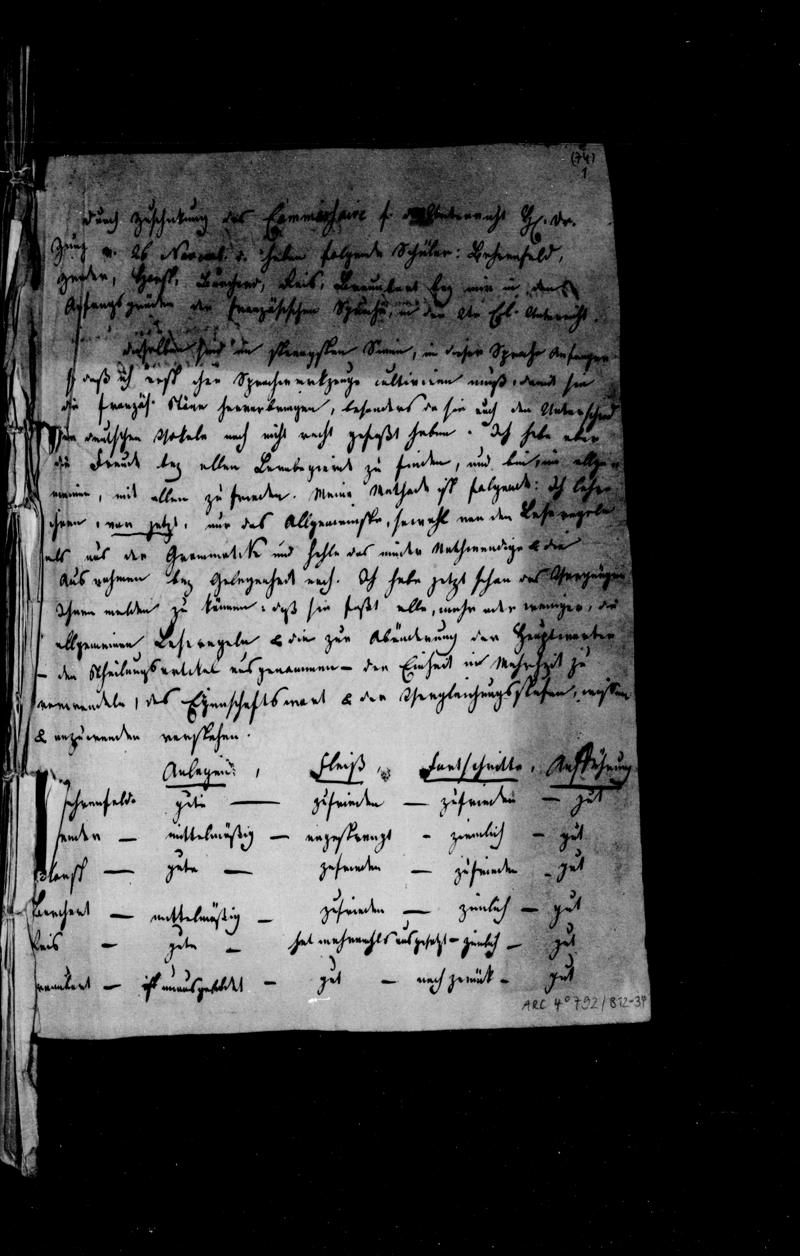 (74)
1
Durch Zuschickung des Commissaire f. d. Unterricht H. Dr.
Jung v. 26 Novemb. d. haben folgende Schüler: Behrenfeld,
Horst, Borchert, Reis, bey mir in den
Anfangsgründen der französischen Sprache, in den Unterricht.
Dieselben sind im strengsten Sinne, in dieser Sprache Anfänger
daß ich erst ihre Sprachwerkzeuge cultiviren muß, damit sie
die französ. Töne hervorbringen, besonders da sie auch den Unterschied
der deutschen Vokale noch nicht recht gefaßt haben. Ich habe aber
die Freude bey allen Lernbegierde zu finden, und bin, im allge-
meinen, mit allen zufrieden. Meine Methode ist folgende: Ich lehre
ihnen, von jetzt, nur das Allgemeinste, sowohl von den Leseregeln
als aus der Grammatik und hohle das minder Nothwendige & die
Ausnahmen bey Gelegenheit nach. Ich habe jetzt schon das Vergnügen
Ihnen melden zu können: daß sie fast alle, mehr oder weniger, die
allgemeinen Leseregeln & die zur Abänderung der Hauptwörter
– den Theilungsartikel ausgenommen – der Einheit in Mehrheit zu
verwandeln, das Eigenschaftswort & der Vergleichungsstufen, wissen
& anzuwenden verstehen.
Anlagen, Fleiß, Fortschritte, Aufführung
Behrenfeld gute — zufrieden — zufrieden — gut
— mittelmäßig — angestrengt - ziemlich — gut
Horst — gute — zufrieden — zufrieden - gut
Borchert — mittelmäßig — zufrieden — zimlich — gut
Reis — gute — hat mehrmahls ausgesetzt – zimlich — gut
— ist unausgebildet — gut — noch zurük — gut
ARC 4° 792 / B 12-34